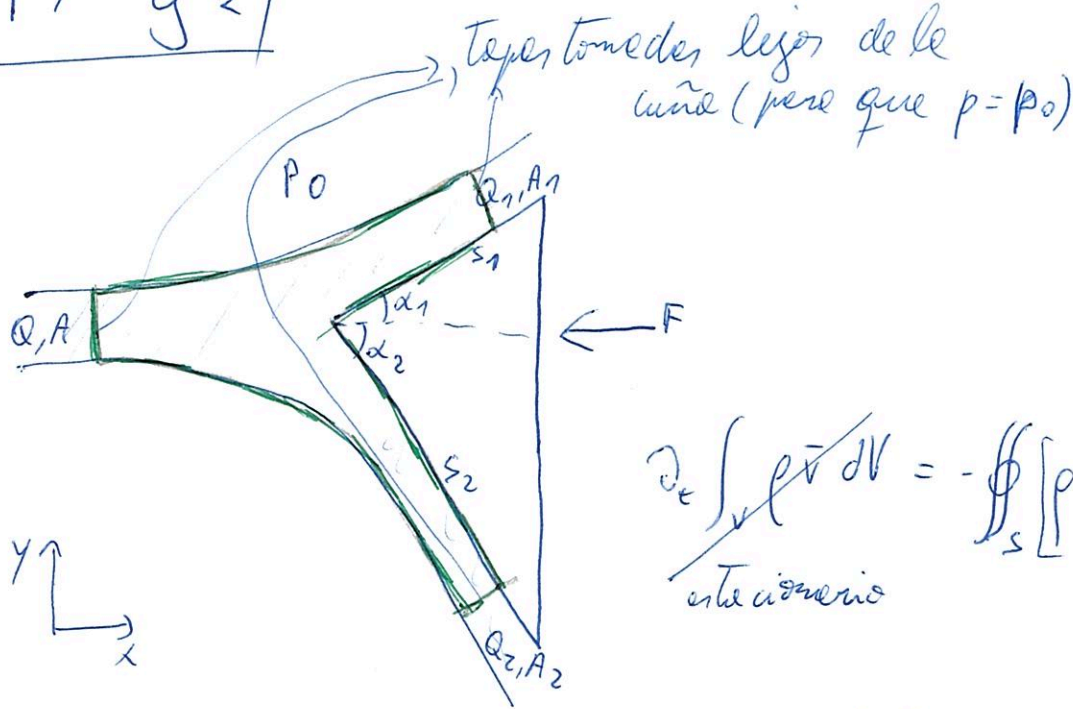 y 2)
Tapas tomadas lejos de la
cuña (para que p = p₀)
P₀
Q₁, A₁
s₁
α₁
Q, A
α₂
F
s₂
∂ₜ ∫ᵥ ρ v̄ dV = - ∯ₛ [ρ
estacionario
y
x
Q₂, A₂